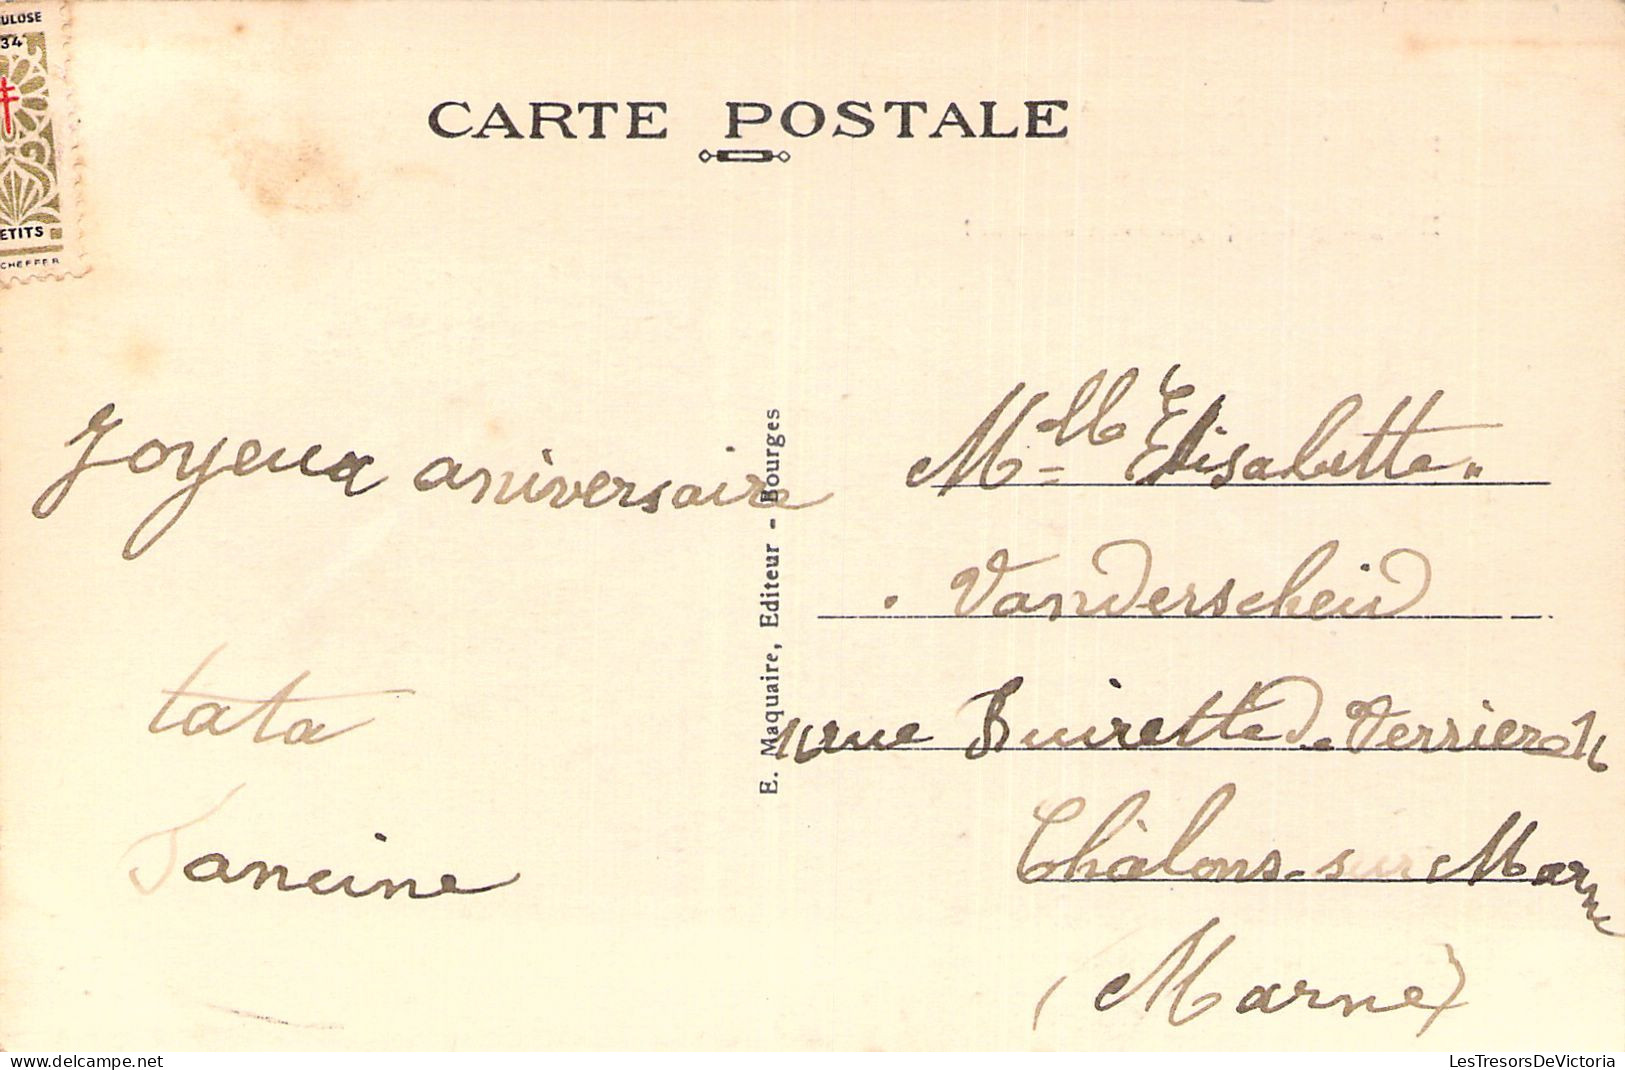 ULOSE
34
ETITS
CHEFFER
CARTE POSTALE
Joyeux aniversaire
tata
E. Maquaire, Editeur - Bourges
Mlle Elisabette
Vanderscheid
rue Buirette
Châlons-sur Marne
(Marne)
LesTresorsDeVictoria